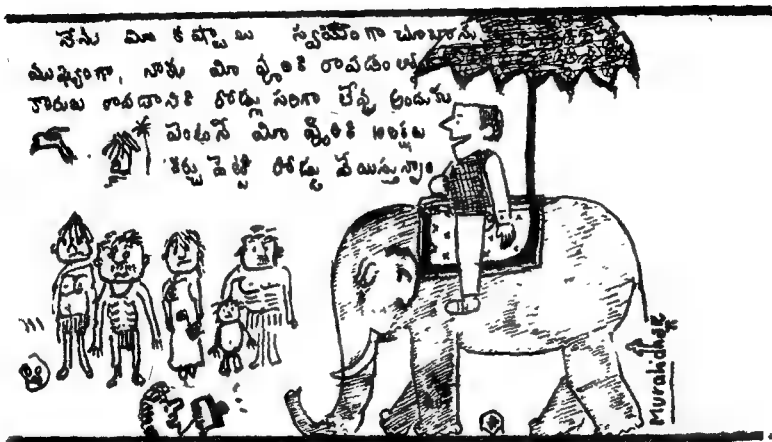 నేను మీ కష్టాలు స్వయంగా చూశాను
ముఖ్యంగా, నాకు మీ వూరికి రావడంలో
కారుబ రావడానికి రోడ్లు సరిగా లేవు అందుకు
వెంటనే మీ వూరికి లక్షలు
ఖర్చు పెట్టి రోడ్డు వేయిస్తున్నాం
Muralidhar